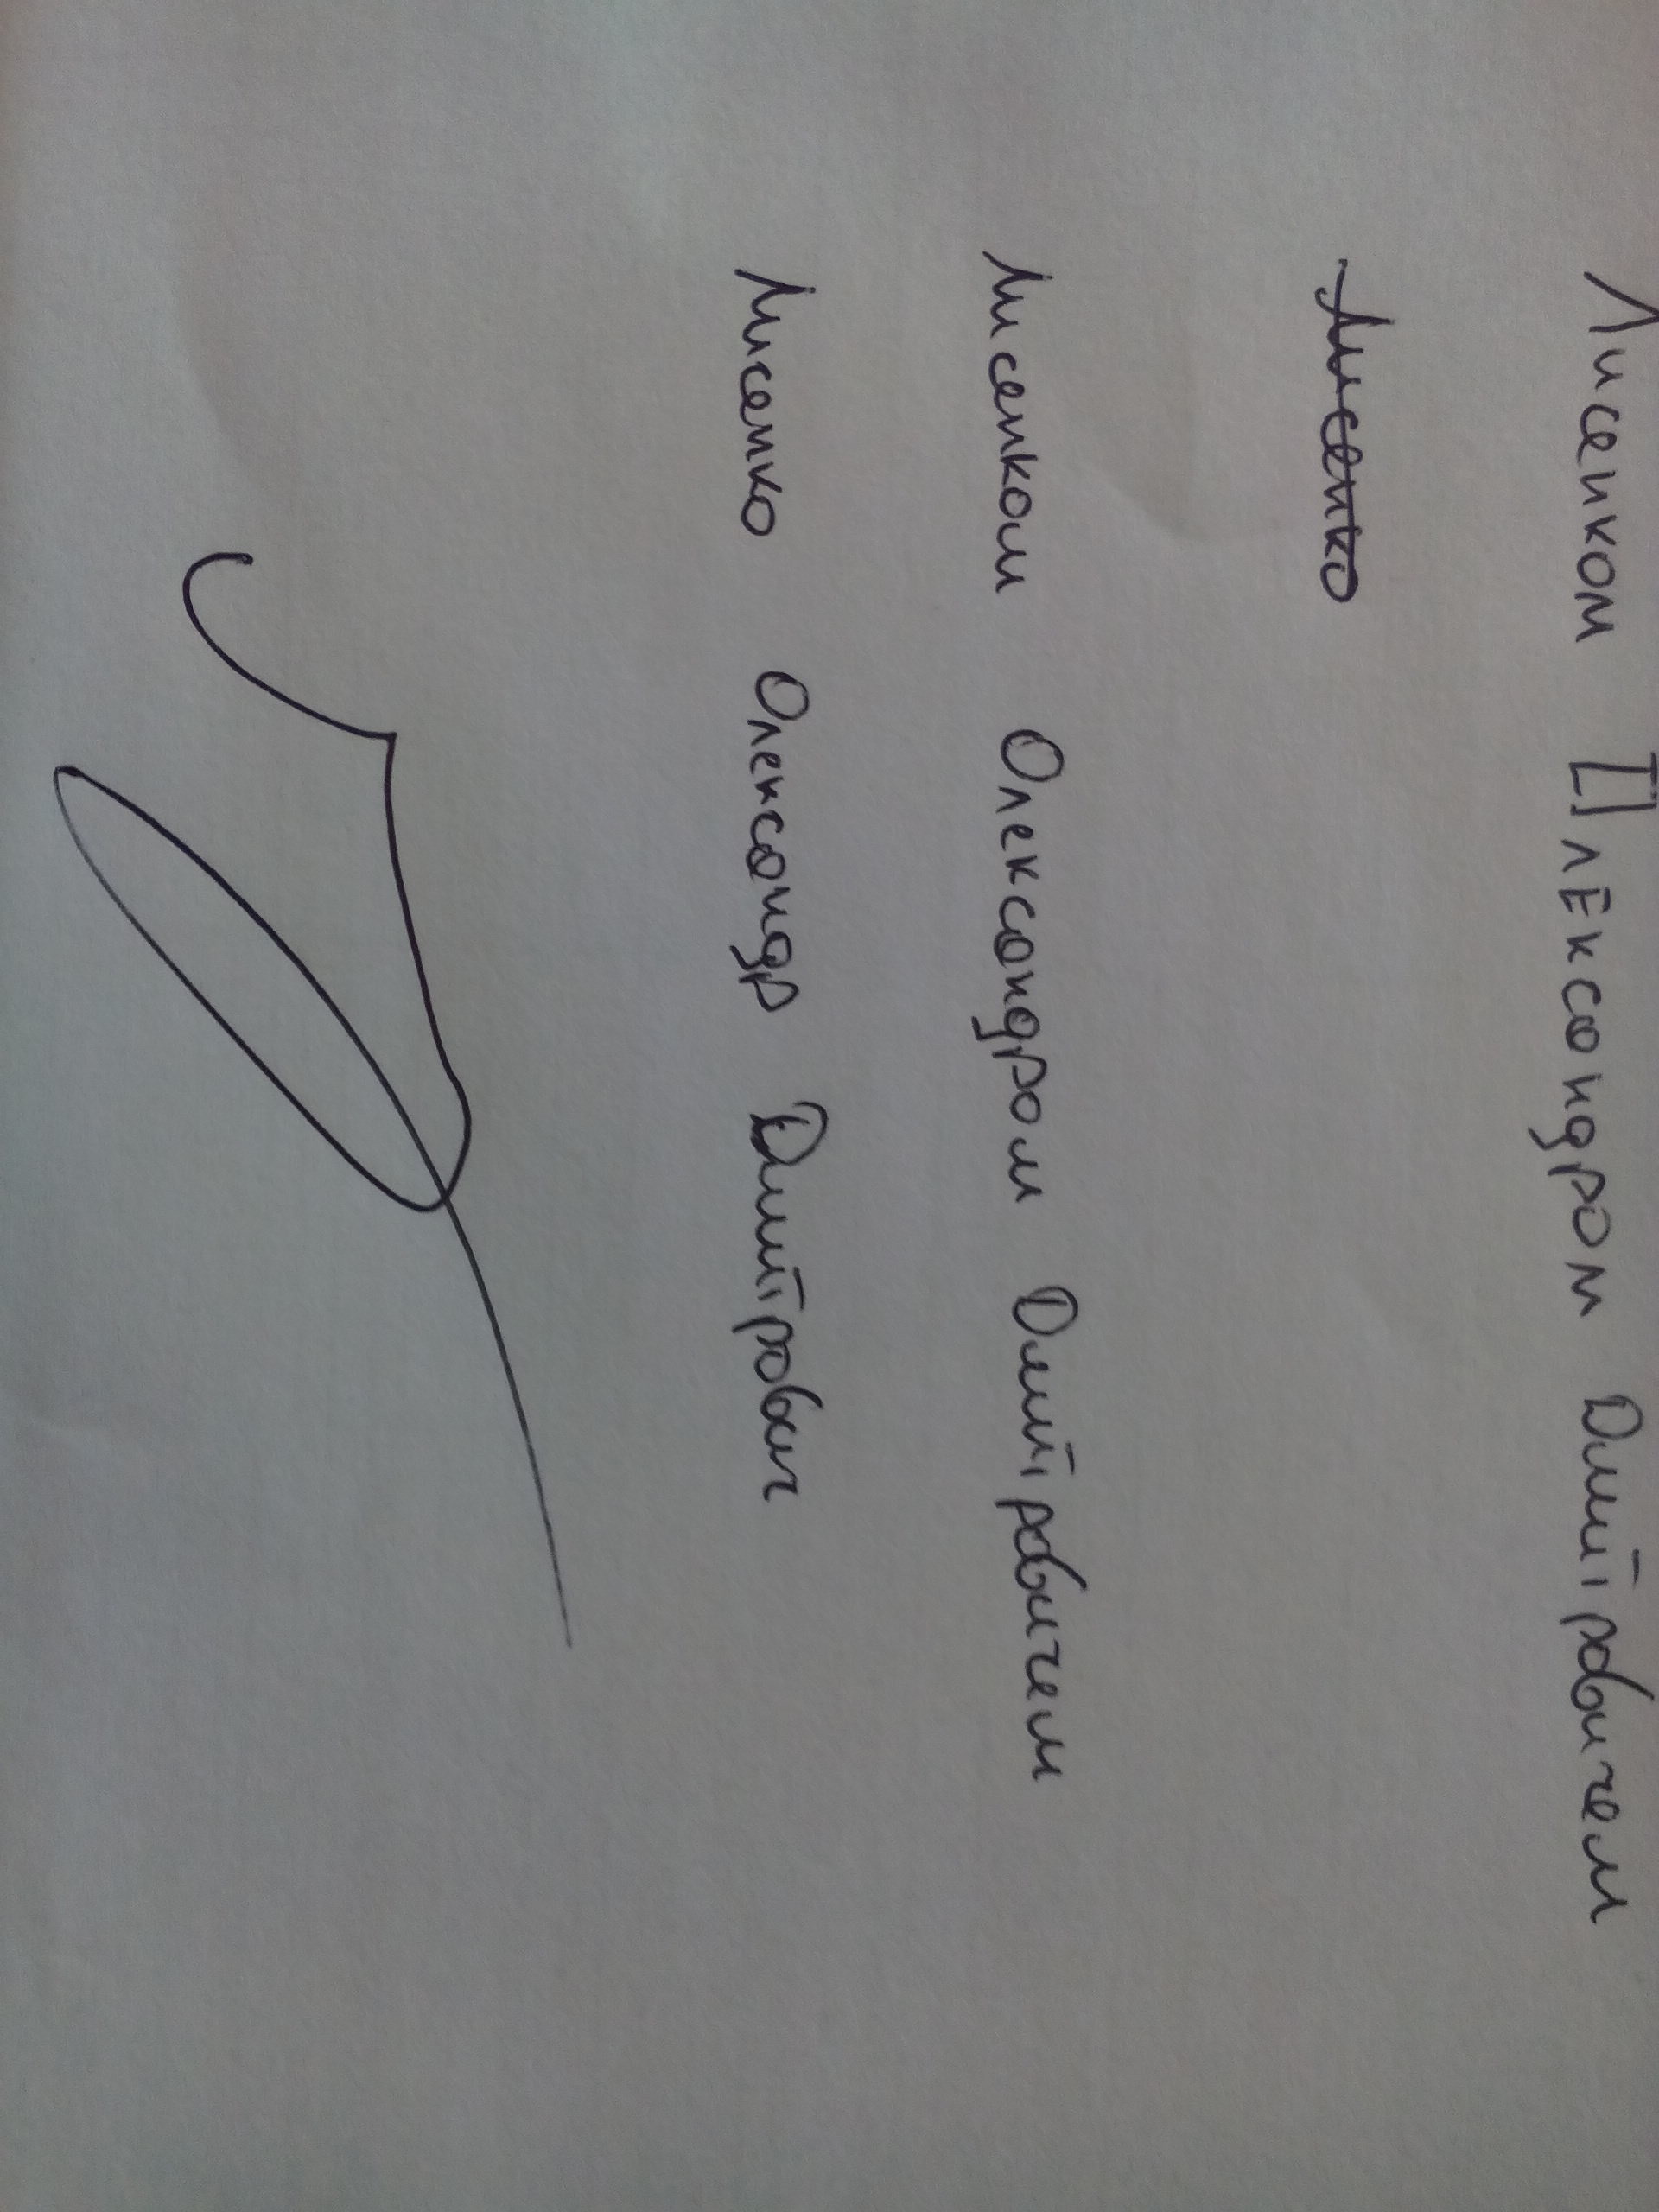 Лисенком Олександром Дмитровичем
Лисенко
Лисенком Олександром Дмитровичем
Лисенко Олександр Дмитрович